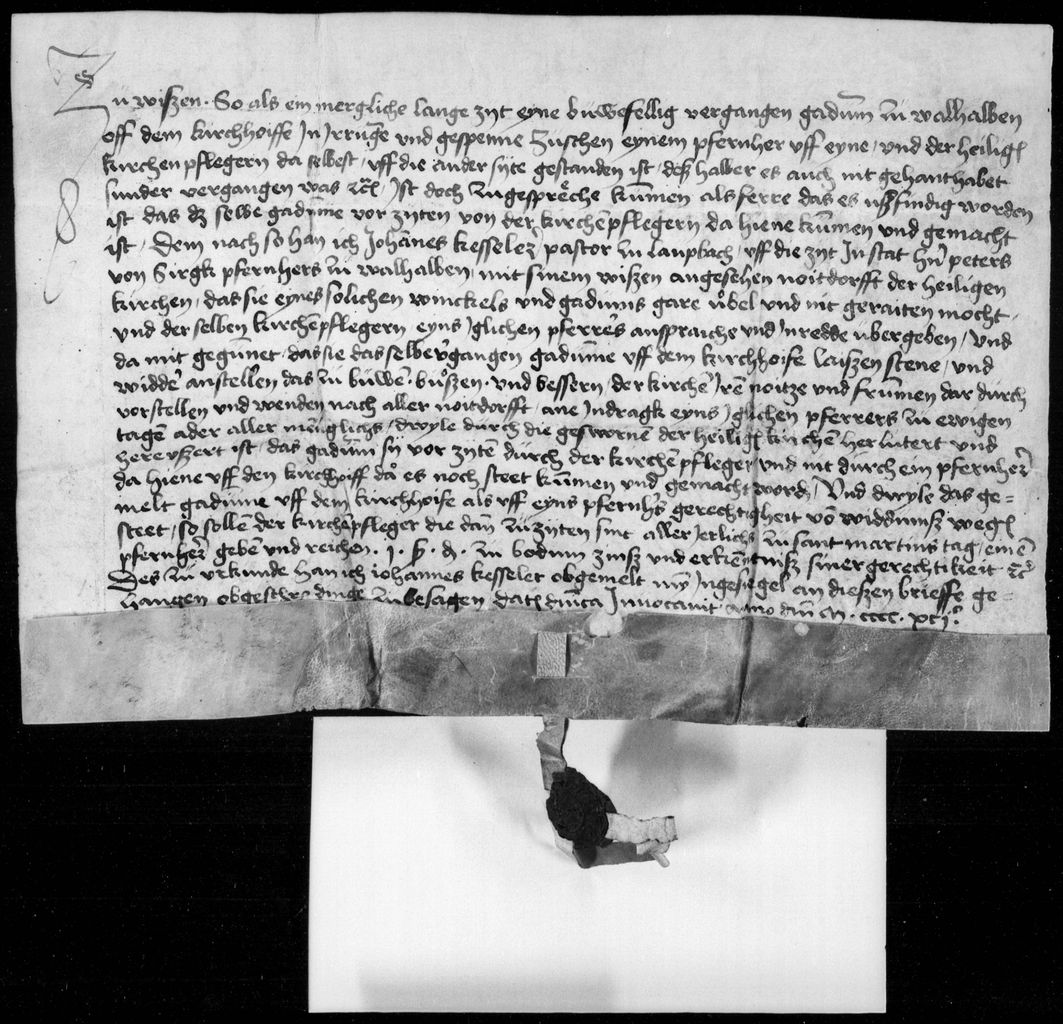 Zu wiszen. So als ein mergliche lange zyt eyne buwefellig vergangen gadům zů walhalben
vff dem kirchhoiffe In Irrunge vnd gespenne zuschen eynem pfernher vff eyne, vnd der heilig
kirchen pflegern da selbest, vff die ander syte gestanden ist, desz halber es auch nit gehanthabet
sunder vergangen was, Ist doch zu gespreche kůmen als ferre das es uszfindig worden
ist das dz selbe gadůme vor zyten von der kirchēpflegern da hiene kůmen und gemacht
ist, Dem nach so han ich Johānes kesseler pastor zů laupbach, vff die zyt In stat hn̄ peters
von Sirgk pfernhers zů walhalben, mit sinem wiszen angesehen noitdorfft der heiligen
kirchen, das sie eynes solichen winckels vnd gadums gare ůbel vnd nit geraiten mocht,
vnd der selben kirchēpflegern eyns iglichen pferrers ansprache vnd Inredde ůbergeben, vnd
da mit gegůnet, das sie das selbe vgangen gadůme vff dem kirchhoife laiszen stene, vnd
widder anstellen das zů bůwē bůszen vnd bessern, der kirchē Iren noitze vnd frůmen dar durch
vorstellen vnd wenden nach aller noitdorfft, ane Indragk eyns iglichen pferrers zů ewigen
tagē ader aller mēnglichs, dwyle durch die geswornē der heilig kirchen her lutert vnd
das gadům sy vor zytē důrch der kirchē pfleger vnd nit důrch ein pfernher
da hiene vff den kirchhoiff da es noch steet kůmen vnd gemacht word, Vnd dwyle das ge=
melt gadůme vff dem kirchhoife als vff eyns pfernhs gerechtigheit vō widdůmsz weg
steet, so sollē der kirchēpfleger die dan zů zyten sint aller Jerlichs zů sant martins tag, einē
pfernher gebē vnd reichen. j. ß. d. zů bodum zinsz vnd erkēntnisz siner gerechtikeit
Des zů vrkunde han ich iohannes kesseler obgemelt my Ingesiegel an dieszen brieffe ge=
hangen obgeschr dinge zů besagen dat dn̄ica Inuocauit Anno dn̄i M. cccc. xcj.